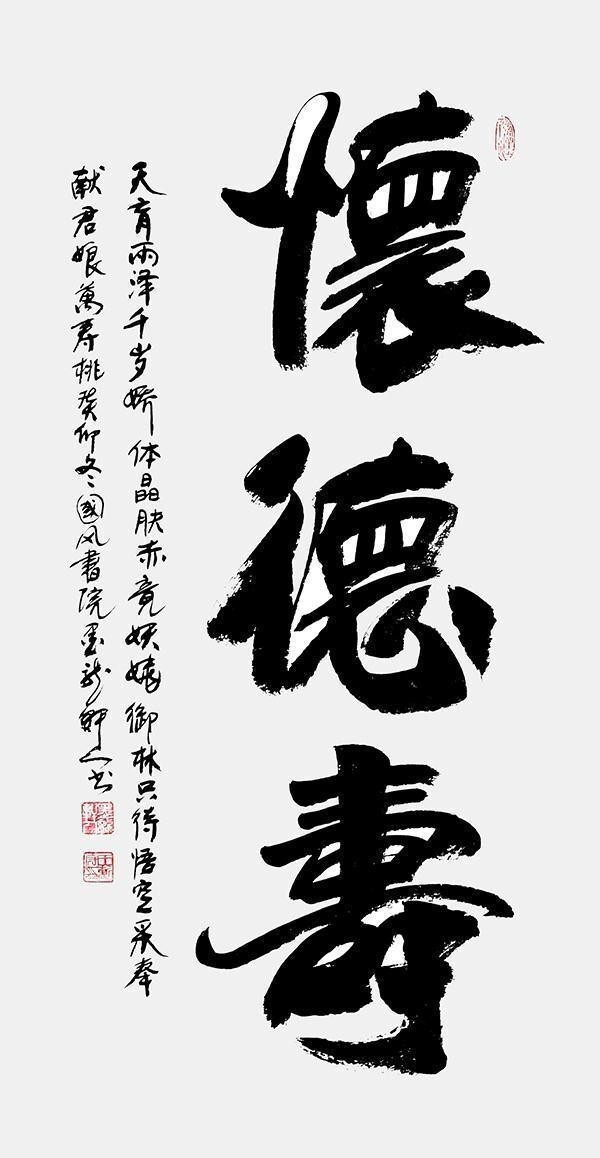 懷德壽
天育雨泽千岁娇体晶肤赤竟妖娆御林只待悟空采奉
献君娘萬寿桃癸卯冬国风書院墨龙